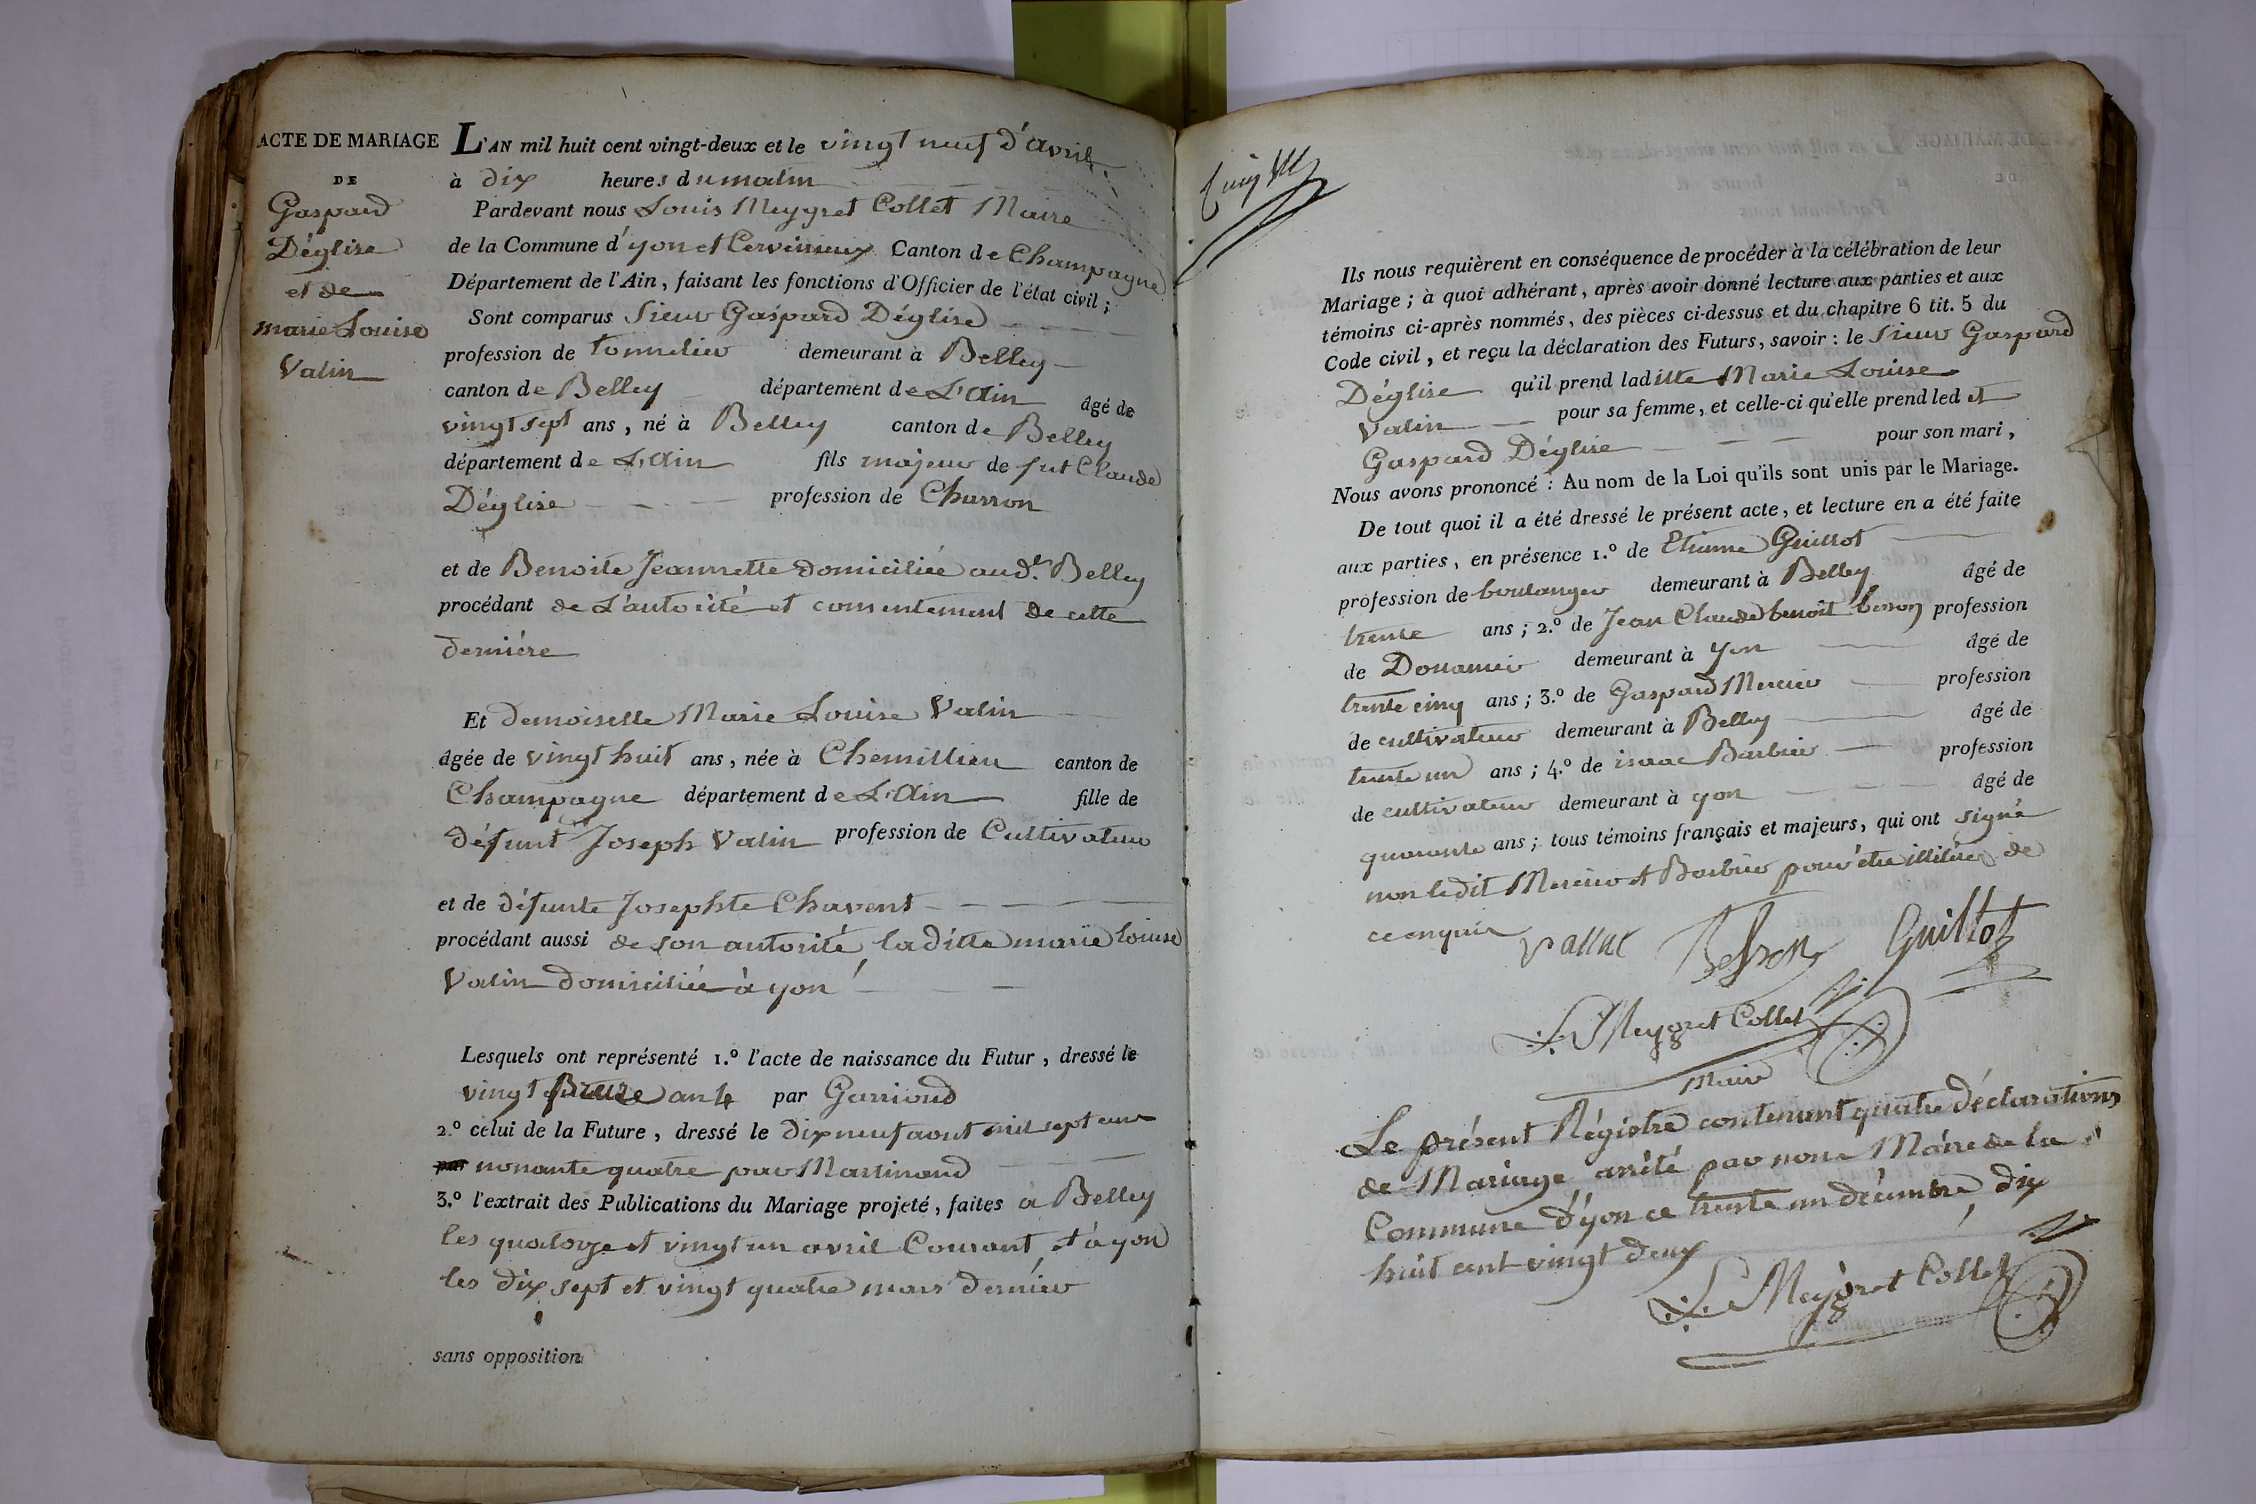 ACTE DE MARIAGE
DE
Gaspard
Déglise
et de
marie Louise
Valin
L'AN mil huit cent vingt-deux et le vingt neuf d'avril
à dix heures du matin
Pardevant nous Louis Meygret Collet Maire
de la Commune d'yon et Cerveirieux Canton de Champagne
Département de l'Ain, faisant les fonctions d'Officier de l'état civil;
Sont comparus Sieur Gaspard Déglise
profession de tonnelier demeurant à Belley
canton de Belley département de L'Ain âgé de
vingt sept ans, né à Belley canton de Belley
département de L'Ain fils majeur de fut Claude
Déglise profession de Charron
et de Benoite Jeannette domiciliée aud.t Belley
procédant de L'autorité et consentement de cette
derniére
Et demoiselle Marie Louise Valin
âgée de vingt huit ans, née à Chemillieu canton de
Champagne département de L'Ain fille de
défunt Joseph Valin profession de Cultivateur
et de défunte Josephte Chavent
procédant aussi de son autorité, laditte marie louise
Valin domiciliée à yon
Lesquels ont représenté 1.º l'acte de naissance du Futur, dressé le
vingt an 4 par Garrioud
2.º celui de la Future, dressé le dix neuf aout mil sept cent
nonante quatre par Martinand
3.º l'extrait des Publications du Mariage projeté, faites à Belley
les quatorze et vingt un avril Courant et à yon
les dix sept et vingt quatre mars dernier
sans opposition
Ils nous requièrent en conséquence de procéder à la célébration de leur
Mariage; à quoi adhérant, après avoir donné lecture aux parties et aux
témoins ci-après nommés, des pièces ci-dessus et du chapitre 6 tit. 5 du
Code civil, et reçu la déclaration des Futurs, savoir: le Sieur Gaspard
Déglise qu'il prend laditte Marie Louise
Valin pour sa femme, et celle-ci qu'elle prend led et
Gaspard Déglise pour son mari,
Nous avons prononcé: Au nom de la Loi qu'ils sont unis par le Mariage.
De tout quoi il a été dressé le présent acte, et lecture en a été faite
aux parties, en présence 1.º de Etienne Guillot
profession de boulanger demeurant à Belley âgé de
trente ans; 2.º de Jean Claude benoit besson profession
de Douanier demeurant à yon âgé de
trente cinq ans; 3.º de Gaspard Mercier profession
de cultivateur demeurant à Belley âgé de
trente un ans; 4.º de isaac Barbier profession
de cultivateur demeurant à yon âgé de
quarante ans; tous témoins français et majeurs, qui ont signé
non ledit Mercier et Barbier pour être illitérés de
ce enquis
Besson Guillot
L. Meygret Collet
Maire
Le présent Régistre contenant quatre déclarations
de Mariage arrêté par nous Maire de la
Commune d'yon ce trente un décembre, dix
huit cent vingt deux
L. Meygret Collet